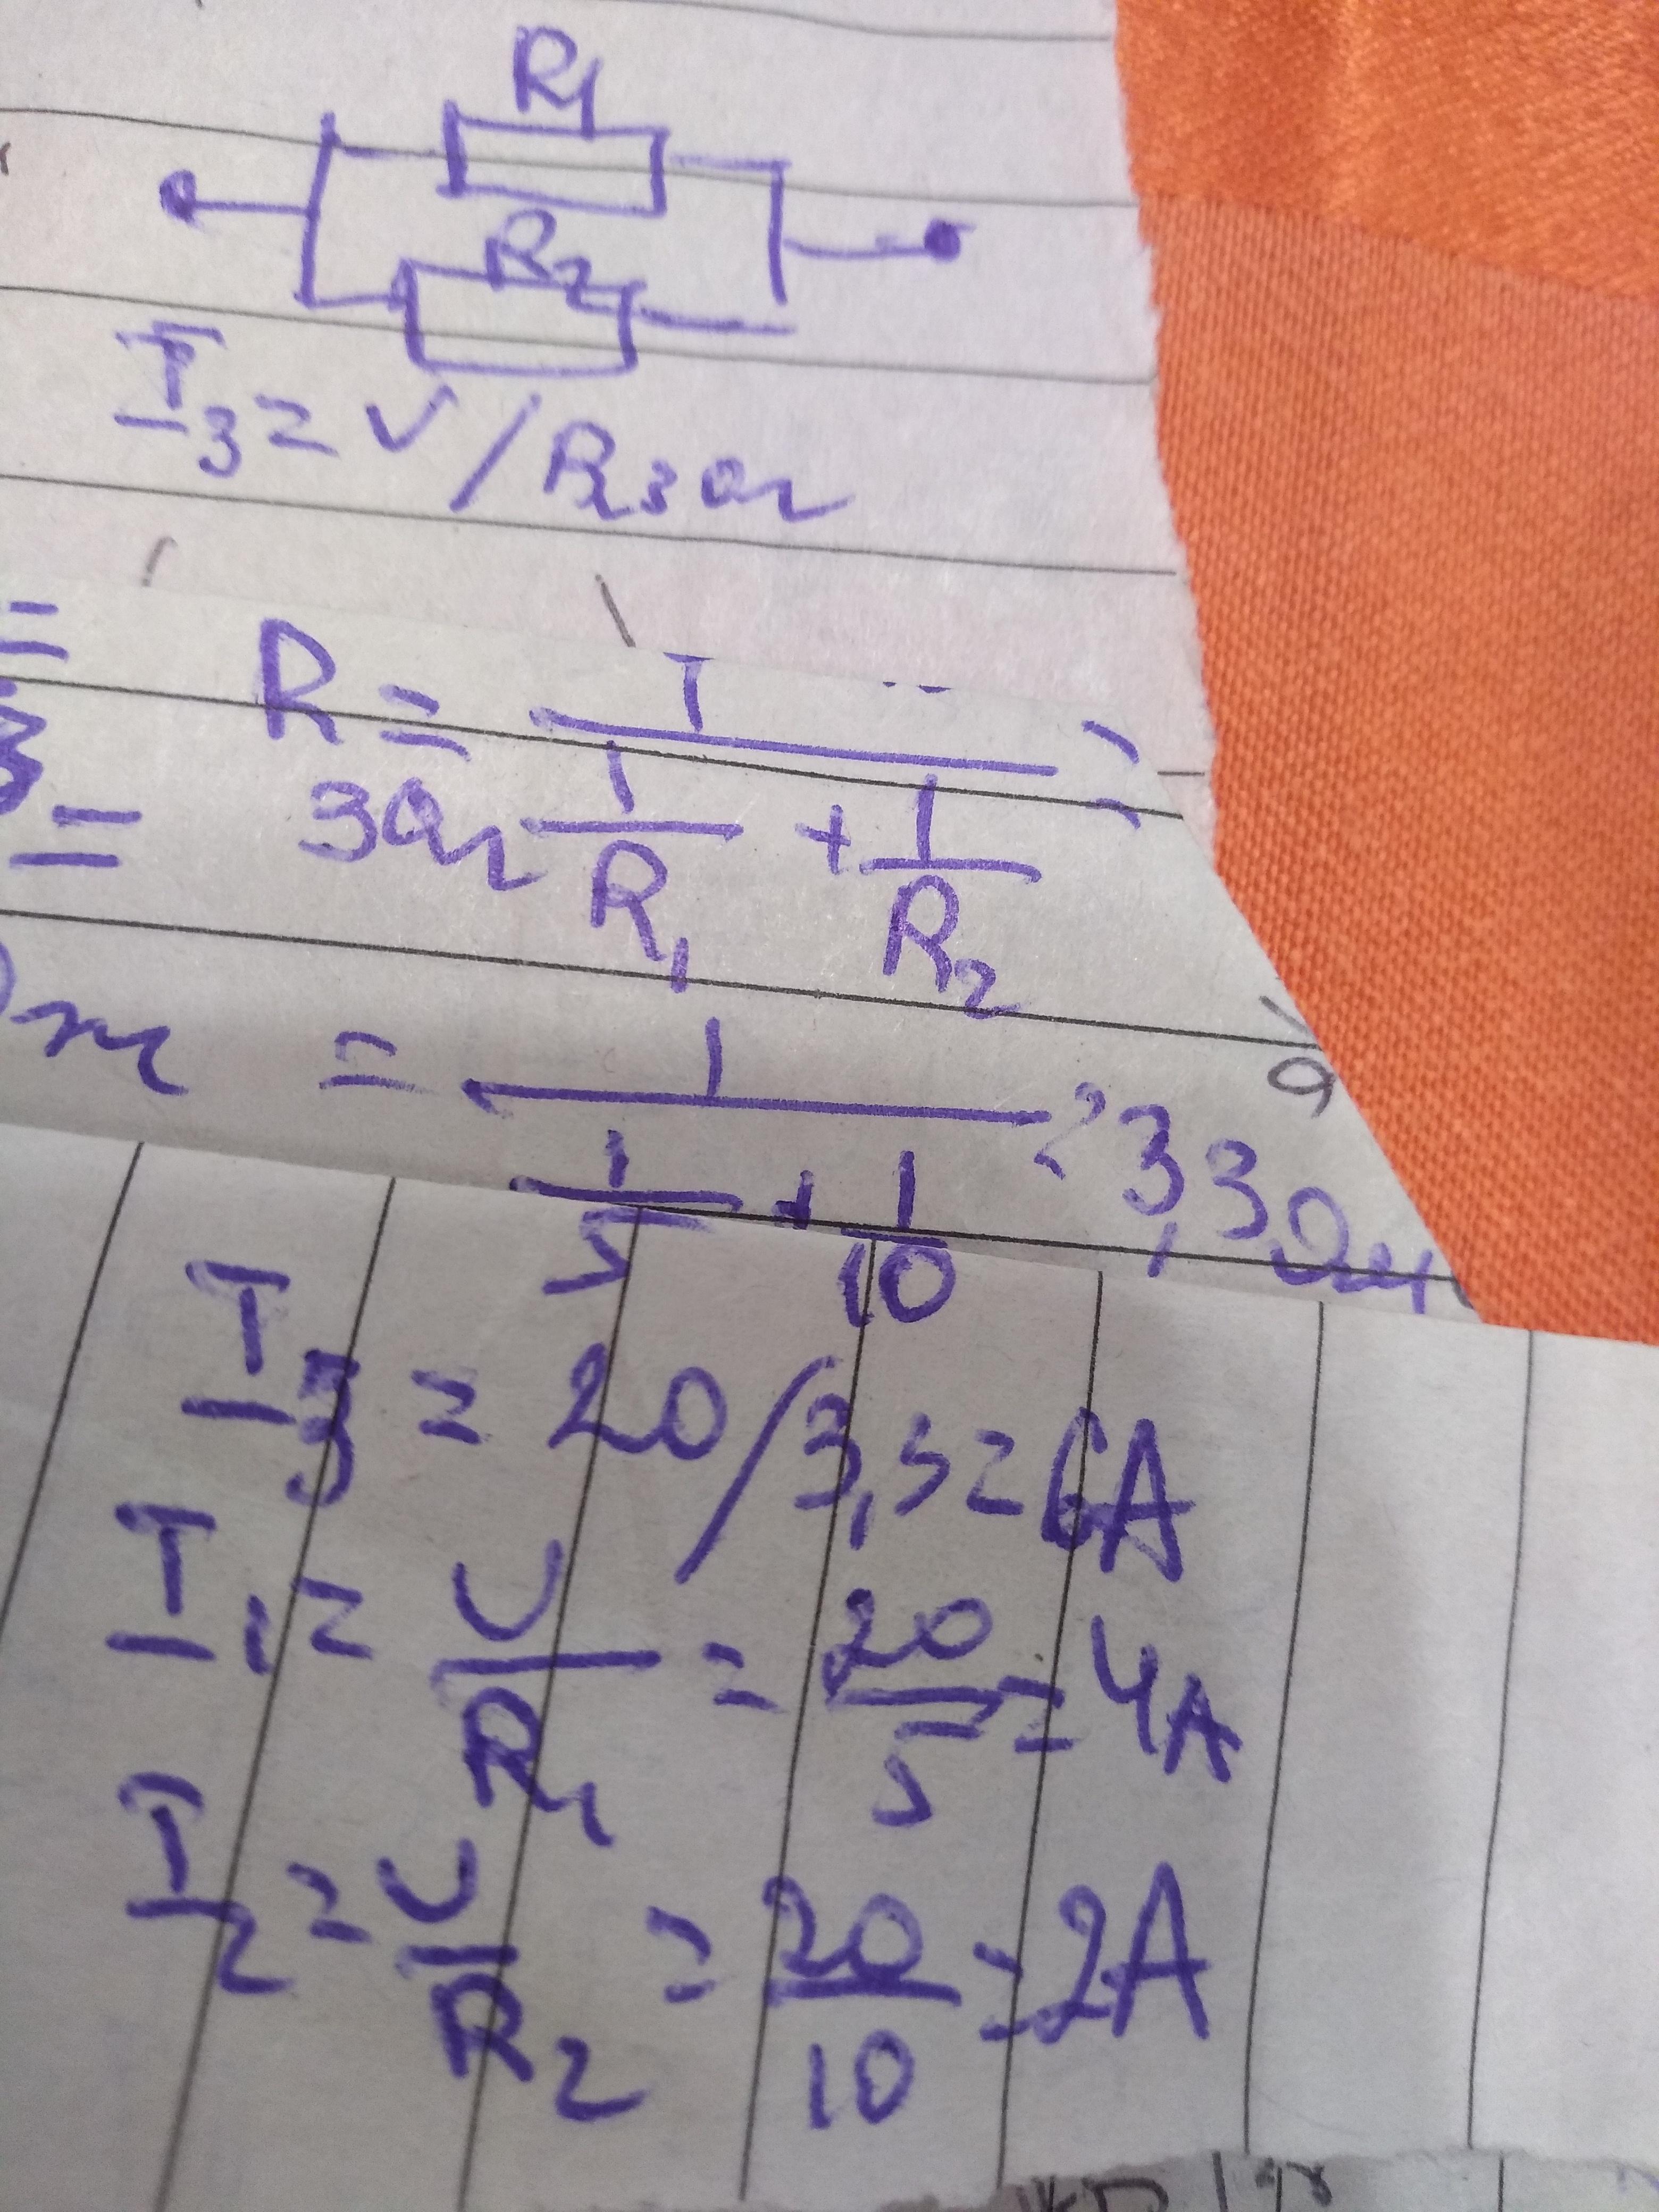 R1
R2
I3 = U/Rзаг
R заг = 1 / (1/R1 + 1/R2) =
= 1 / (1/5 + 1/10) = 3,3 Ом
I3 = 20/3,3 = 6A
I1 = U/R1 = 20/5 = 4A
I2 = U/R2 = 20/10 = 2A